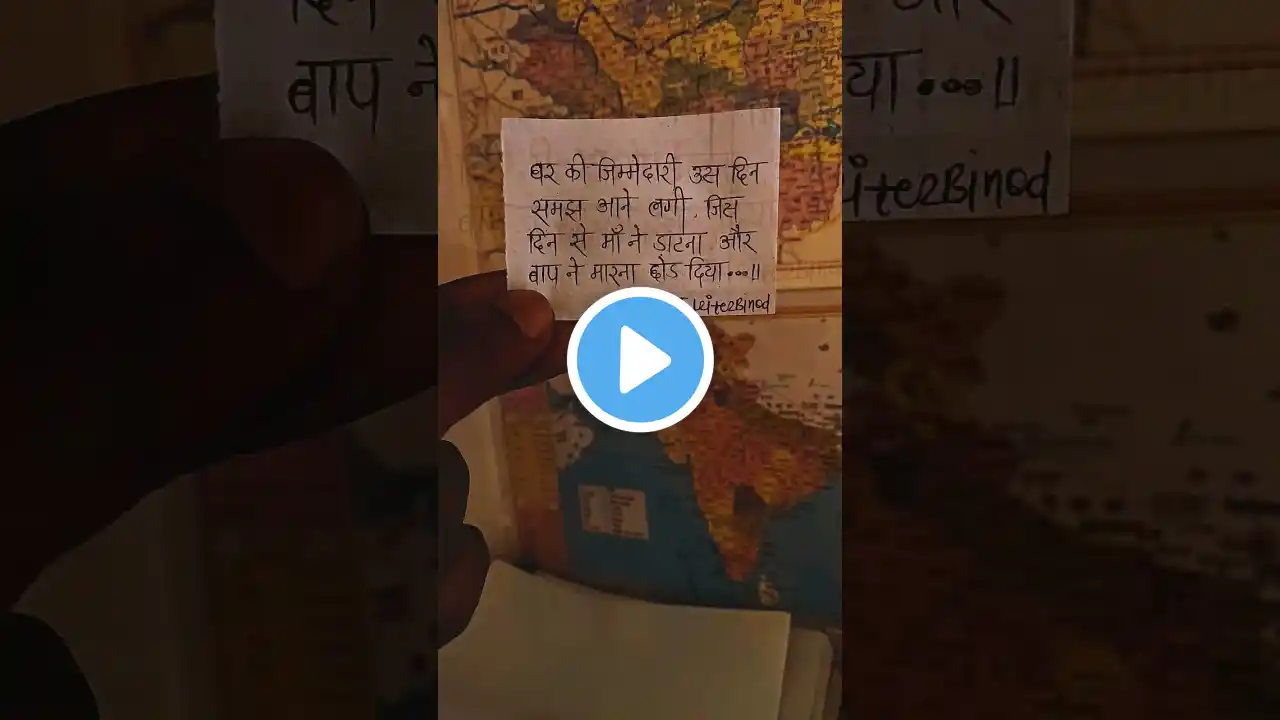 घर की जिम्मेदारी उस दिन
समझ आने लगी, जिस
दिन से माँ ने डाटना और
बाप ने मारना छोड दिया...॥
WriterBinod